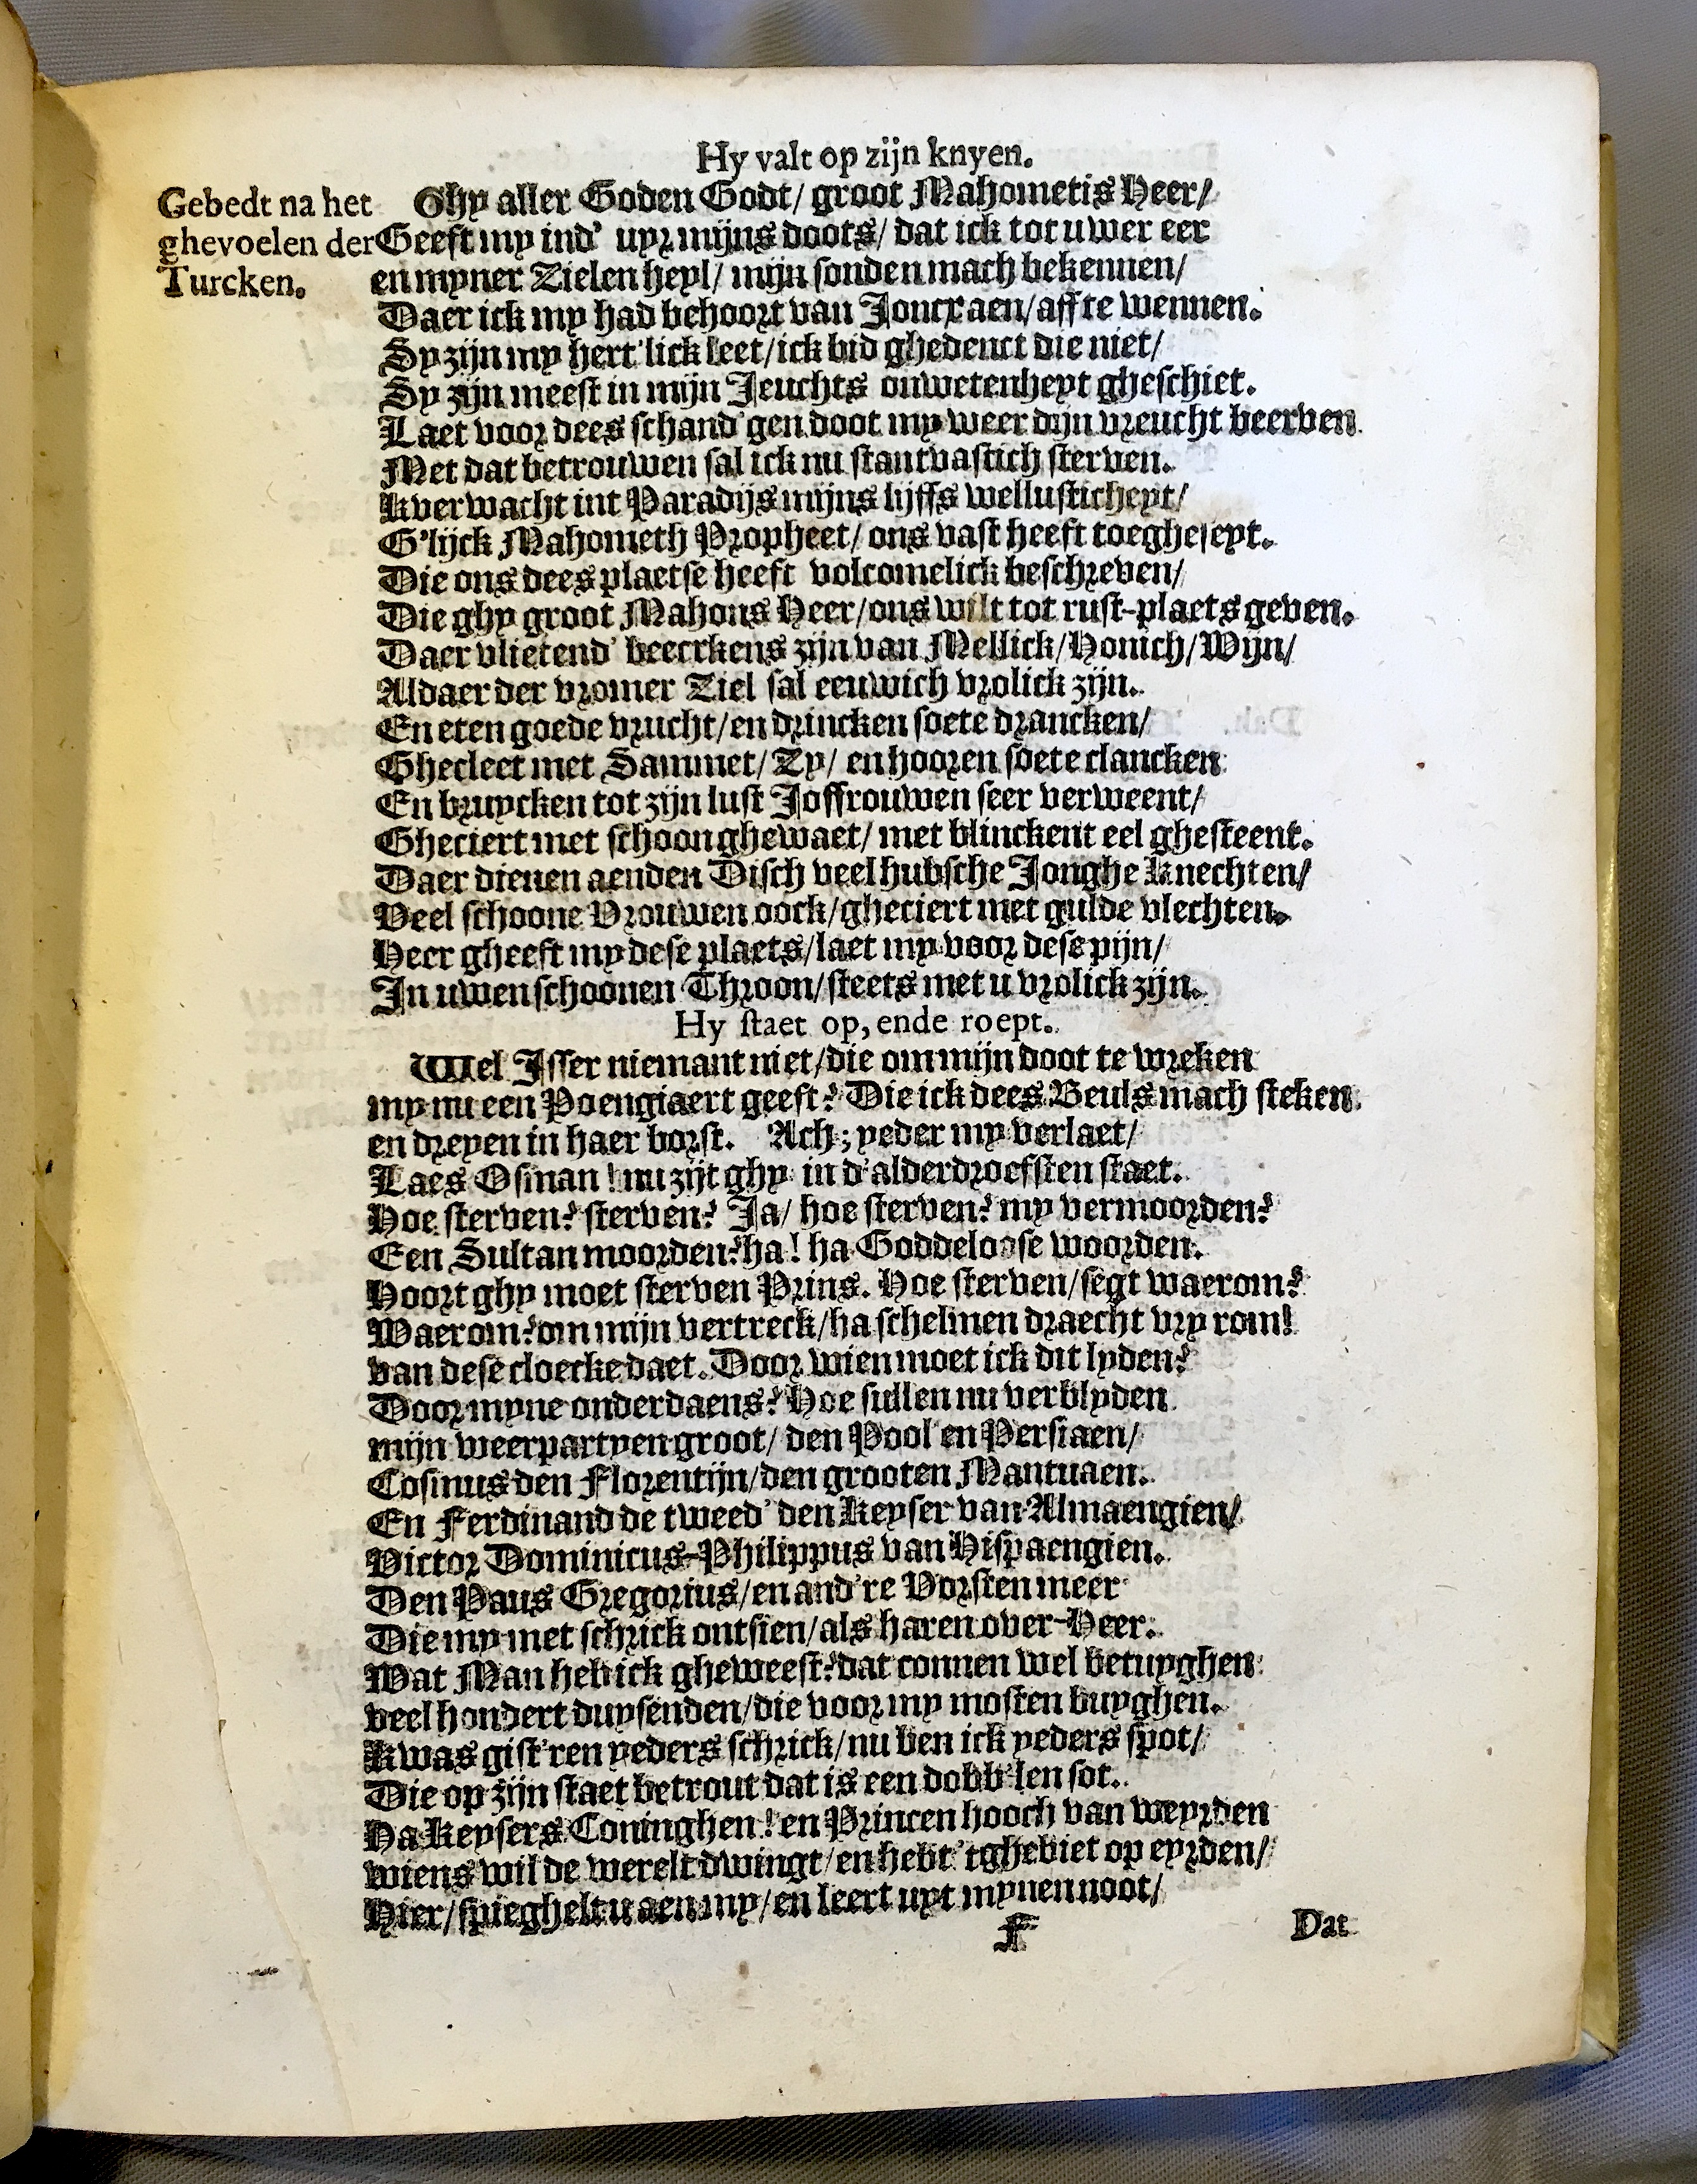 Hy valt op zijn knyen.
Gebedt na het
ghevoelen der
Turcken.
Ghy aller Goden Godt/ groot Mahometis Heer/
Geeft my ind' uyr mijns doots/ dat ick tot uwer eer
en myner Zielen heyl/ mijn sonden mach bekennen/
Daer ick my had behoort van Joncx aen/ aff te wennen.
Sy zijn my hert'lick leet/ ick bid ghedenct die niet/
Sy zijn meest in mijn Jeuchts onwetenheyt gheschiet.
Laet voor dees schand'gen doot my weer dijn vreucht beerven.
Met dat betrouwen sal ick nu stantvastich sterven.
Kverwacht int Paradijs mijns lijffs wellusticheyt/
G'lijck Mahometh Propheet/ ons vast heeft toegheseyt.
Die ons dees plaetse heeft volcomelick beschreven/
Die ghy groot Mahons Heer/ ons wilt tot rust-plaets geven.
Daer vlietend' beeckkens zijn van Mellick/ Honich/ Wijn/
Aldaer der vromer Ziel sal eeuwich vrolick zijn.
En eten goede vrucht/ en drincken soete drancken/
Ghecleet met Sammet/ Zy/ en hooren soete clancken
En bruycken tot zijn lust Joffrouwen seer verweent/
Gheciert met schoon ghewaet/ met blinckent eel ghesteent.
Daer dienen aenden Disch veel hubsche Jonghe Knechten/
Veel schoone Vrouwen oock/ gheciert met gulde vlechten.
Heer gheeft my dese plaets/ laet my voor dese pijn/
In uwen schoonen Throon/ steets met u vrolick zijn.
Hy staet op, ende roept.
Wel Isser niemant niet/ die om mijn doot te wreken
my nu een Poengiaert geeft? Die ick dees Beuls mach steken.
en dreyen in haer borst. Ach; yeder my verlaet/
Laes Osman! nu zijt ghy in d'alderdroefsten staet.
Hoe sterven? sterven? Ja/ hoe sterven? my vermoorden?
Een Sultan moorden? ha! ha Goddeloose woorden.
Hoort ghy moet sterven Prins. Hoe sterven/ segt waerom?
Waerom? om mijn vertreck/ ha schelmen draecht vry rom!
van dese cloecke daet. Door wien moet ick dit lyden?
Door myne onderdaens? Hoe sullen nu verblyden
mijn weerpartyen groot/ den Pool en Persiaen/
Cosmus den Florentijn/ den grooten Mantuaen.
En Ferdinand de tweed' den Keyser van Almaengien/
Victor Dominicus-Philippus van Hispaengien.
Den Paus Gregorius/ en and're Vorsten meer
Die my met schrick ontsien/ als haren over-Heer.
Wat Man heb ick gheweest? dat connen wel betuyghen
veel hondert duysenden/ die voor my mosten buyghen.
Kwas gist'ren yeders schrick/ nu ben ick yeders spot/
Die op zijn staet betrout dat is een dobb'len sot.
Ha Keysers Coninghen! en Princen hooch van weyrden
wiens wil de werelt dwingt/ en hebt 'tghebiet op eyrden/
Hier/ spieghelt u aen my/ en leert uyt mynen noot/
F
Dat